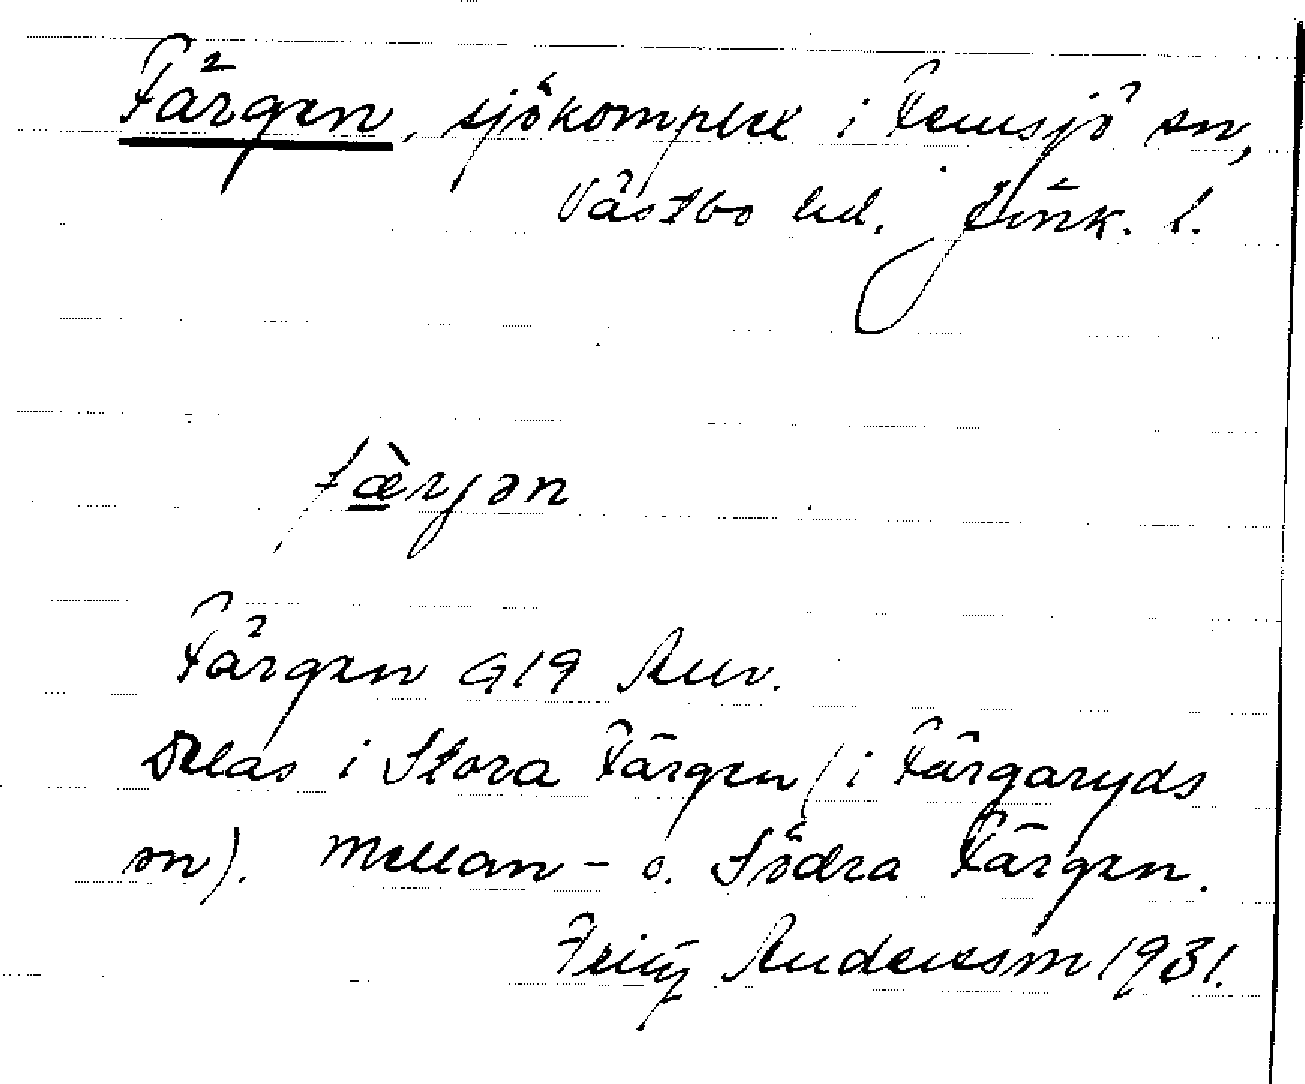 Färgen, sjökomplex i Femsjö sn,
Västbo hd. Jönk. l.
fæ̀rjən
Färgen G19 Anv.
Delas i Stora Färgen (i Färgaryds
sn). Mellan- o. Södra Färgen.
Fritz Andersson 1931.